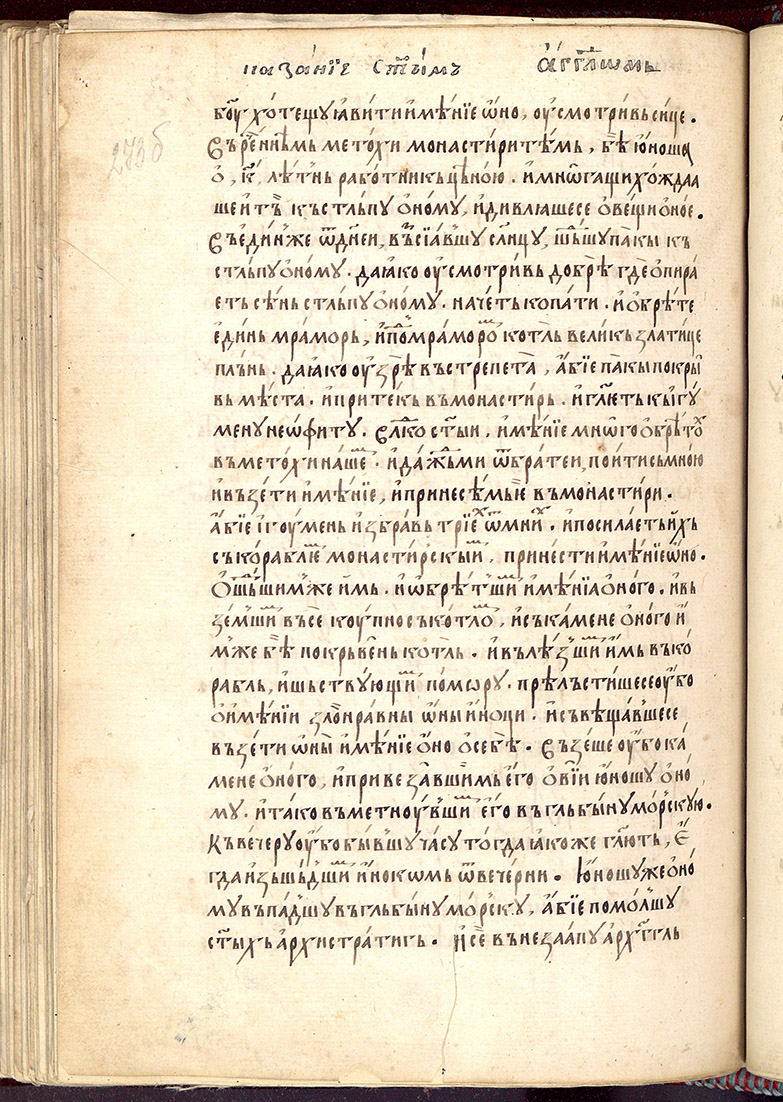 пазанїе ст҃ымь аг҃гл҃ѡмь
273б
бо҃у хѻтещꙋ ꙗвити имѣнїе ѡно, оусмотривь сице.
въ рече́ннѣмь метохи монастири тѣмь, бѣ юноша
о, к҃, лѣтнь работникь цѣною. и мнѡгащи хождаа
ше итъ къ стлъпꙋ ономꙋ, и дивлꙗшесе о вещи оное.
въ едінже ѿ днеи, въсїавшꙋ сл҃нцꙋ, шьшꙋ пакы къ
стлъпꙋ ономꙋ. да ꙗко оусмотривь добрѣ где опира
еть сѣнь стлъпꙋ ономꙋ. начеть копати. и обрѣте
единь мраморь, и под мраморѡ котль великь златице
плънь. да ꙗко оузрѣ въстрепета, абїе пакы покры
вь мѣста. и притекь въ монастирь. и гл҃еть къ игꙋ
менꙋ неѡфитꙋ. вл҃ко ст҃ыи, имѣнїе мнѡго обрѣтох
въ метохи наше. и даждь ми ѿ братеи, поити сьмною
и възети имѣнїе, и принести е въ монастири.
абїе игоумень избравь трїех ѿ мних. и посилаеть ихь
съ кораблїе монастирскыи, принести имѣнїе ѡно.
Ошьшимже имь. и ѡбрѣтши имѣнїа оного. и вь
земши въсе коупно съ котлѡ, и съ камене оного и
мже бѣ покрьвень котль. и вълѣзши имь въ ко
рабль, и шьствꙋющи по морꙋ. прѣльстишесе оубо
о имѣнїи злонравны ѡны иноци. и съвѣщавшесе
възети ѡны имѣнїе оно о себѣ. възеше оубо ка
мене оного, и привезавшимь его о выи юношꙋ оно
мꙋ. и тако въметноувши его въ глъбынꙋ морскꙋю.
Къ вечерꙋ оубо бывшꙋ часꙋ тогда ꙗкоже гл҃ють, е
гда изьшьдши инокѡмь ѿ вечерни. Юношꙋже оно
мꙋ въпадшꙋ въ глъбынꙋ морскꙋ, абїе помолшꙋ
ст҃ыхъ архистратигь. И се вънезаапꙋ арх҃гг҃ль